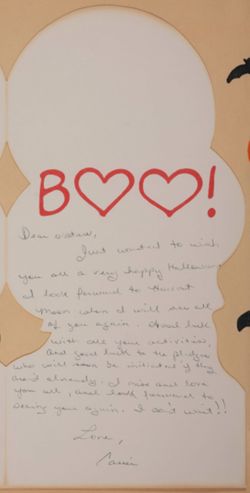 BOO!
Dear sisters,
Just wanted to wish
you all a very happy Halloween.
I look forward to
moon when I will see all
of you again. Good luck
with all your activities,
and good luck to the pledges
who will soon be initiated if they
aren't already. I miss and love
you all, and look forward to
seeing you again. I can't wait!!
Love,